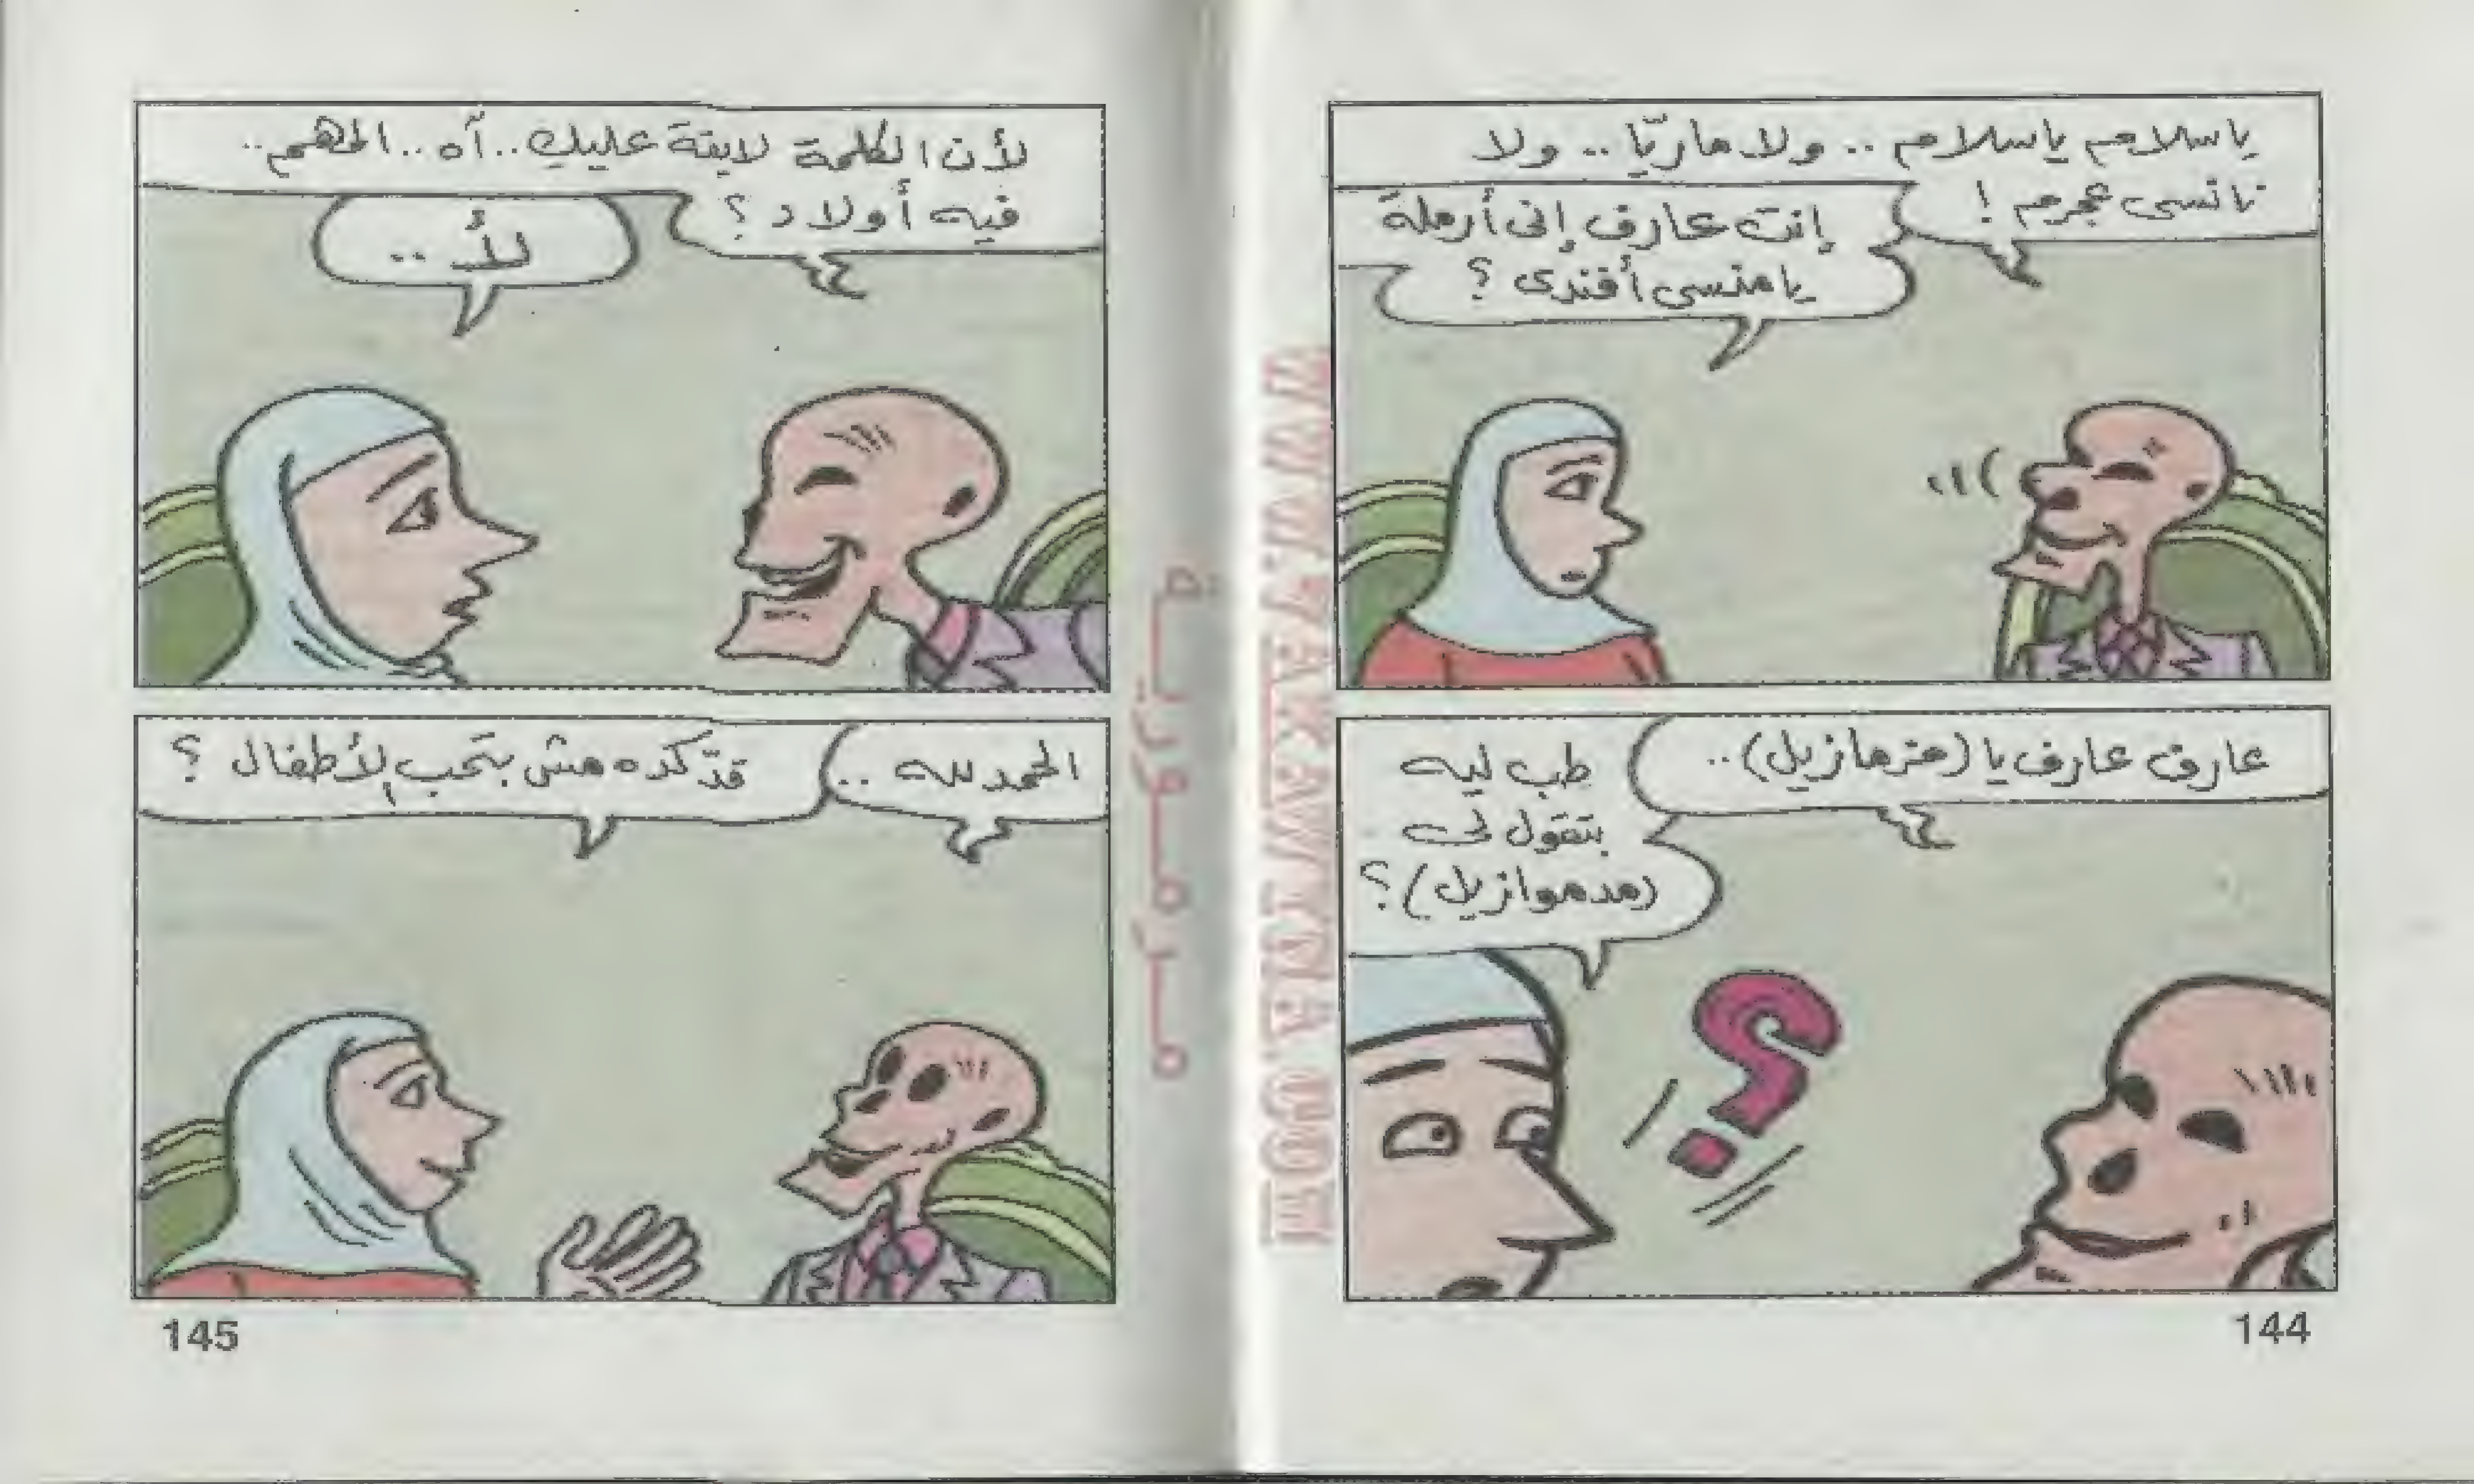 ياسلام ياسلام .. ولا ماريّا .. ولا
نانسى عجرم !
إنت عارف إنى أرملة
يا منسى أفندى ؟
عارف عارف يا (مزمازيل)..
طب ليه
بتقول لى
(مدموازيل) ؟
144
لأن الكلمة لايقة عليكِ.. آه.. المهم..
فيه أولاد ؟
لأ ..
الحمد لله ..
قدّ كده مش بتحب الأطفال ؟
145
مرمورية
WWW.7AKAWEENA.COM